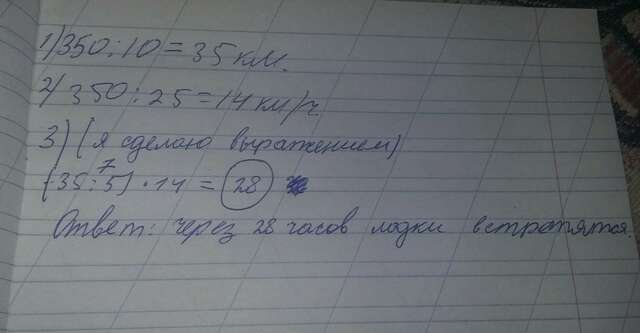 1) 350:10=35 км.
2) 350:25=14 км/ч
3) (я сделаю выражением)
7
(35:5)·14=28
Ответ: через 28 часов лодки встратятся.